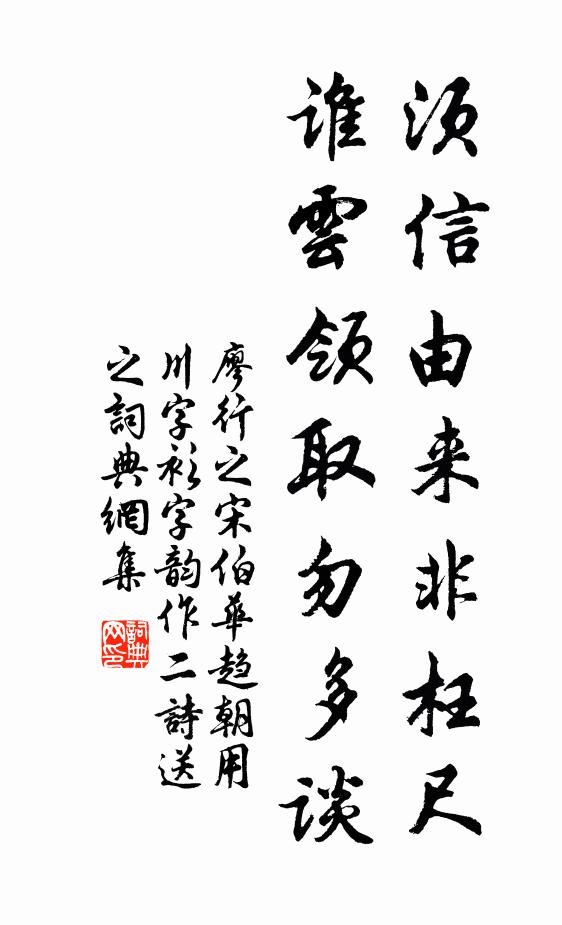 须信由来非枉尺
谁雲领取勿多谈
廖行之宋伯華趋朝用
川字衫字韵作二詩送
之詞典網集
詞典网印